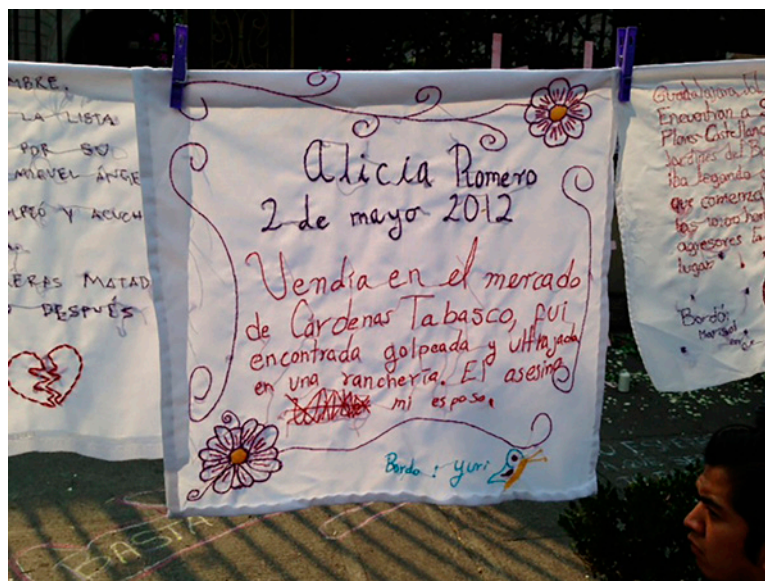 MBRE.
LA LISTA
POR SU
MIGUEL ÁNGE
Y ACUCH
ERAS MATAD
DESPUÉS
Alicia Romero
2 de mayo 2012
Vendía en el mercado
de Cárdenas Tabasco, fui
encontrada golpeada y ultrajada
en una ranchería. El asesino
mi esposo.
Bordo: Yuri
Guadalajara Jal
Encuentran a
Flores Castellano
Jardines del
iba llegando
que comenza
agresores
lugar.
Bordó:
Marisol
BASTA